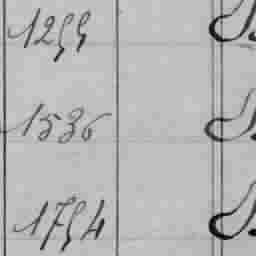 1299
1536
1794